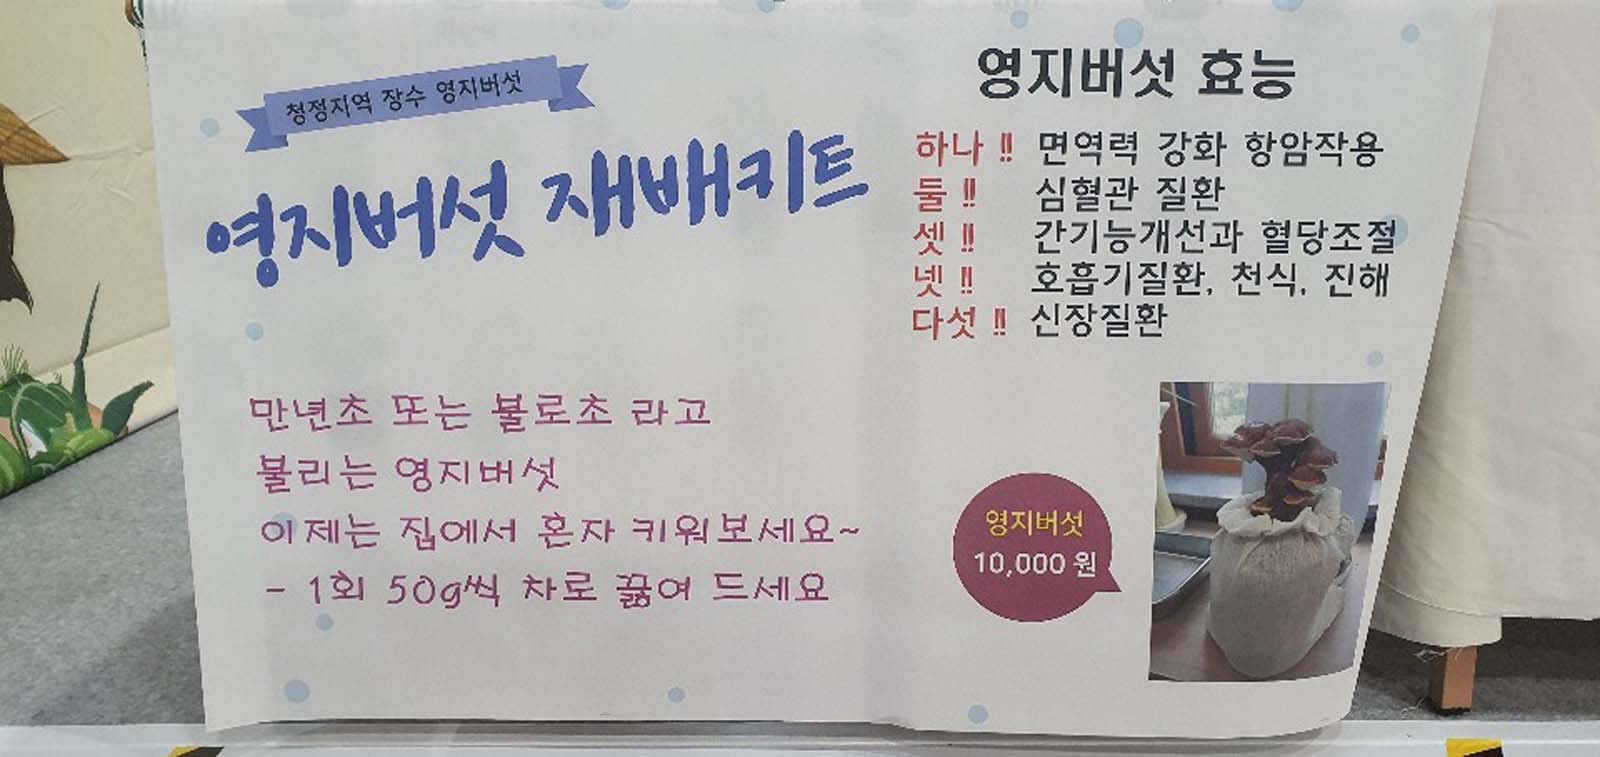 청정지역 장수 영지버섯
영지버섯 재배키트
만년초 또는 불로초 라고
불리는 영지버섯
이제는 집에서 혼자 키워보세요~
- 1회 50g씩 차로 끓여 드세요
영지버섯 효능
하나 !! 면역력 강화 항암작용
둘 !! 심혈관 질환
셋 !! 간기능개선과 혈당조절
넷 !! 호흡기질환, 천식, 진해
다섯 !! 신장질환
영지버섯
10,000 원